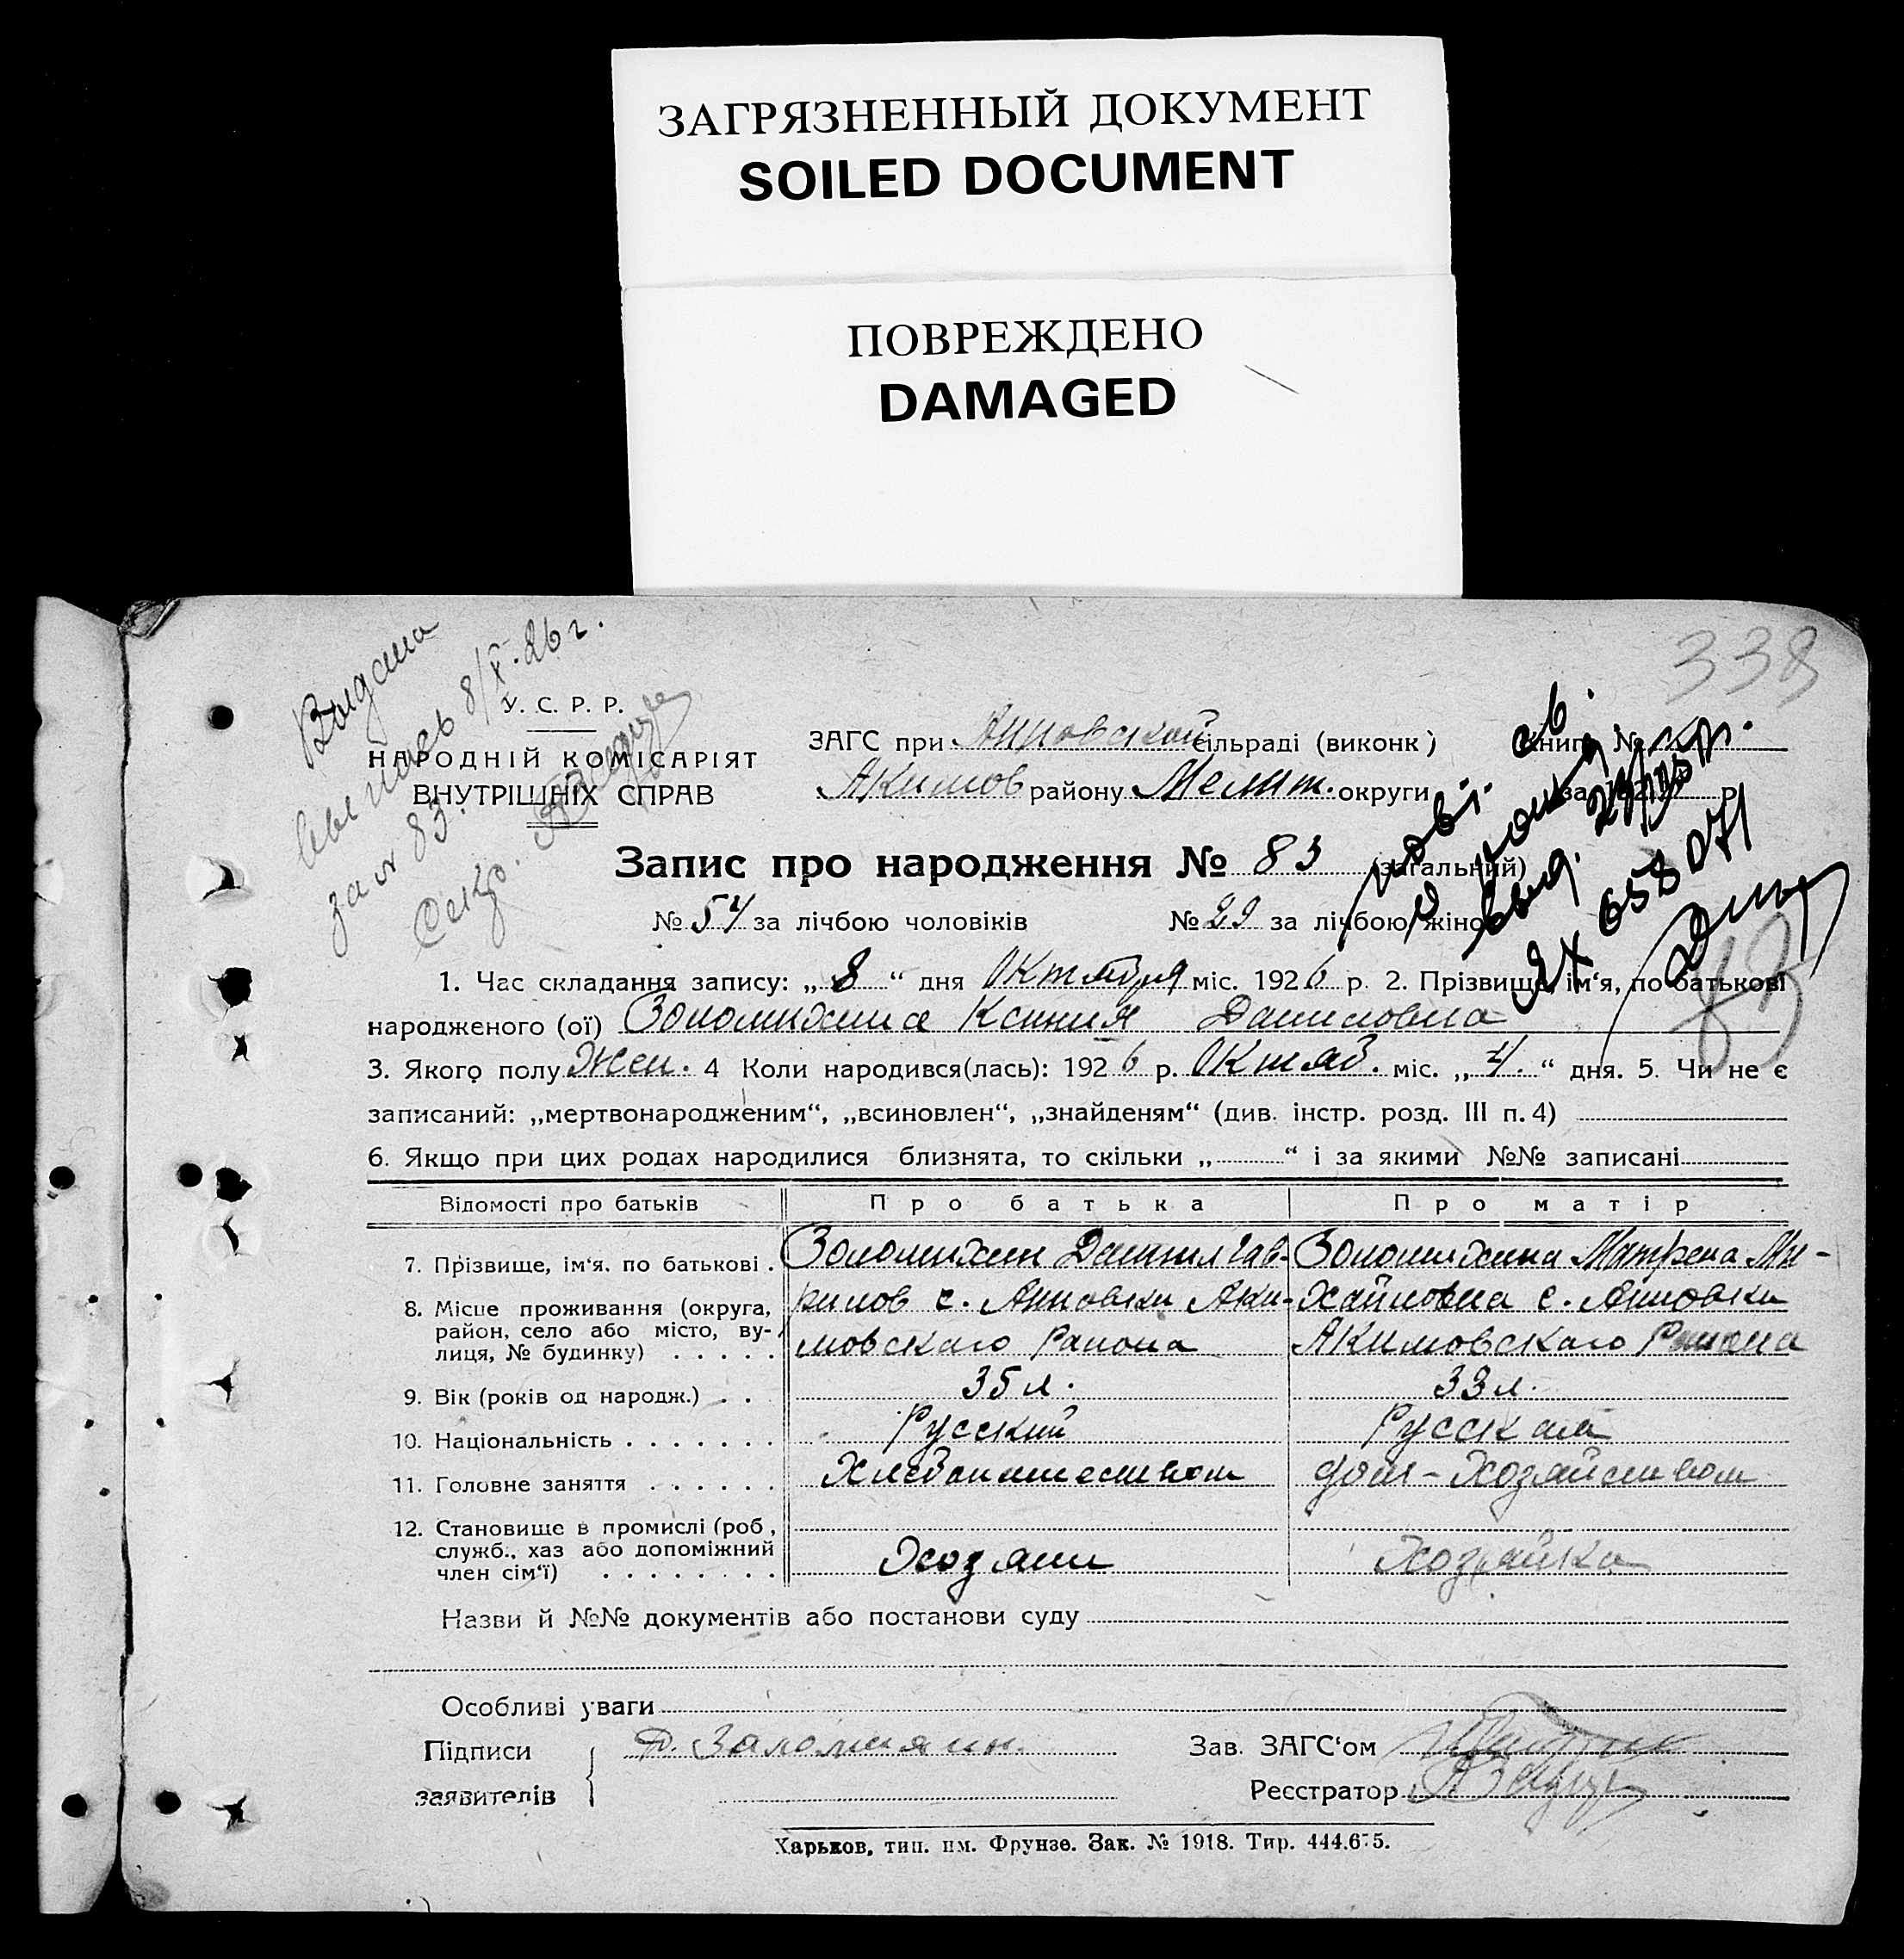 ЗАГРЯЗНЕННЫЙ ДОКУМЕНТ
SOILED DOCUMENT
ПОВРЕЖДЕНО
DAMAGED
338
Выдана
выпись 8/X-26 г.
за № 83.
Секр.
У. С. Р. Р.
НАРОДНІЙ КОМІСАРІЯТ
ВНУТРІШНІХ СПРАВ
ЗАГС при Анновской сільраді (виконк) Книга №
Акимов району Мелит. округи за 192 р.
повт. св.
о рожд.
выд.
ЯХ 658071
Запис про народження № 83 (загальний)
№ 54 за лічбою чоловіків № 29 за лічбою жіно
83
1. Час складання запису: „ 8 “ дня Октября міс. 1926 р. 2. Прізвище, ім‘я, по батькові
народженого (ої) Золомихина Ксиния Даниловна
3. Якого полу Жен. 4 Коли народився(лась): 1926 р. Октяб. міс. „ 4. “ дня. 5. Чи не є
записаний: „мертвонародженим“, „всиновлен“, „знайденям“ (див. інстр. розд. III п. 4)
6. Якщо при цих родах народилися близнята, то скільки „ “ і за якими №№ записані
Відомості про батьків Про батька Про матір
7. Прізвище, ім‘я. по батькові . Золомихин Даниил Гав- Золомихина Матрена Ми-
8. Місце проживання (округа, рилов с. Анновки Аки- хайловна с. Анновки
район, село або місто, ву- мовскаго Раиона Акимовскаго Раиона
лиця, № будинку) . . . . .
9. Вік (років од народж.) . . 35 л. 33 л.
10. Національність . . . . . . . Русский Русская
11. Головне заняття . . . . . . Хлебопашеством дом-Хозяйством
12. Становище в промислі (роб,
служб., хаз або допоміжний Хозяин Хозяйка
член сім‘ї) . . . . . . . .
Назви й №№ документів або постанови суду
Особливі уваги
Підписи Д. Заломихин. Зав. ЗАГС‘ом
заявителів Реєстратор
Харьков, тип. им. Фрунзе. Зак. № 1918. Тир. 444.675.